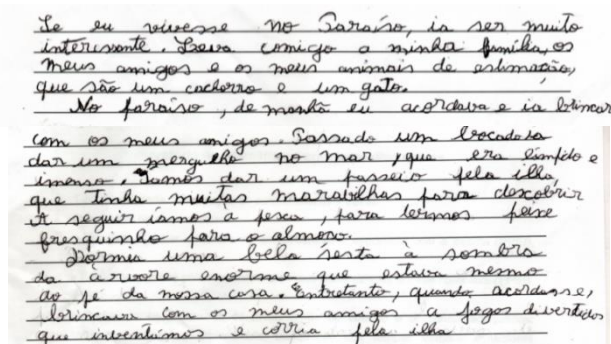 Se eu vivesse no Paraíso, ia ser muito
interessante. Leva comigo a minha família, os
meus amigos e os meus animais de estimação,
que são um cachorro e um gato.
No paraíso, de manhã eu acordava e ia brincar
com os meus amigos. Passado um bocado ia
dar um mergulho no mar, que era límpido e
imenso. Íamos dar um passeio pela ilha,
que tinha muitas maravilhas para descobrir
A seguir íamos à pesca, para termos peixe
fresquinho para o almoço.
Dormia uma bela sesta à sombra
da árvore enorme que estava mesmo
ao pé da nossa casa. Entretanto, quando acordasse,
brincava com os meus amigos a jogos divertidos
que inventámos e corria pela ilha